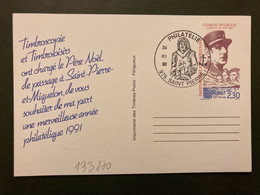 Timbroscopie
et Timbroloisirs
ont chargé le Père Noël,
de passage à Saint-Pierre-
et-Miquelon, de vous
souhaiter de ma part
une merveilleuse année
philatélique 1991
Imprimerie des Timbres-Poste - Périgueux
PHILATELIE
975 SAINT PIERRE
CHARLES DE GAULLE
2,30
133/70